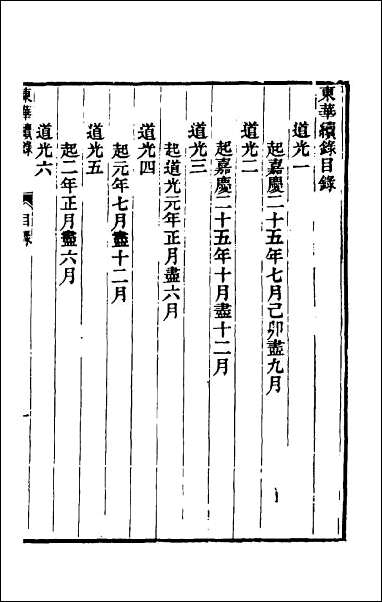 東華續錄目錄
道光一
起嘉慶二十五年七月己卯盡九月
道光二
起嘉慶二十五年十月盡十二月
道光三
起道光元年正月盡六月
道光四
起元年七月盡十二月
道光五
起二年正月盡六月
道光六
東華續錄
目錄